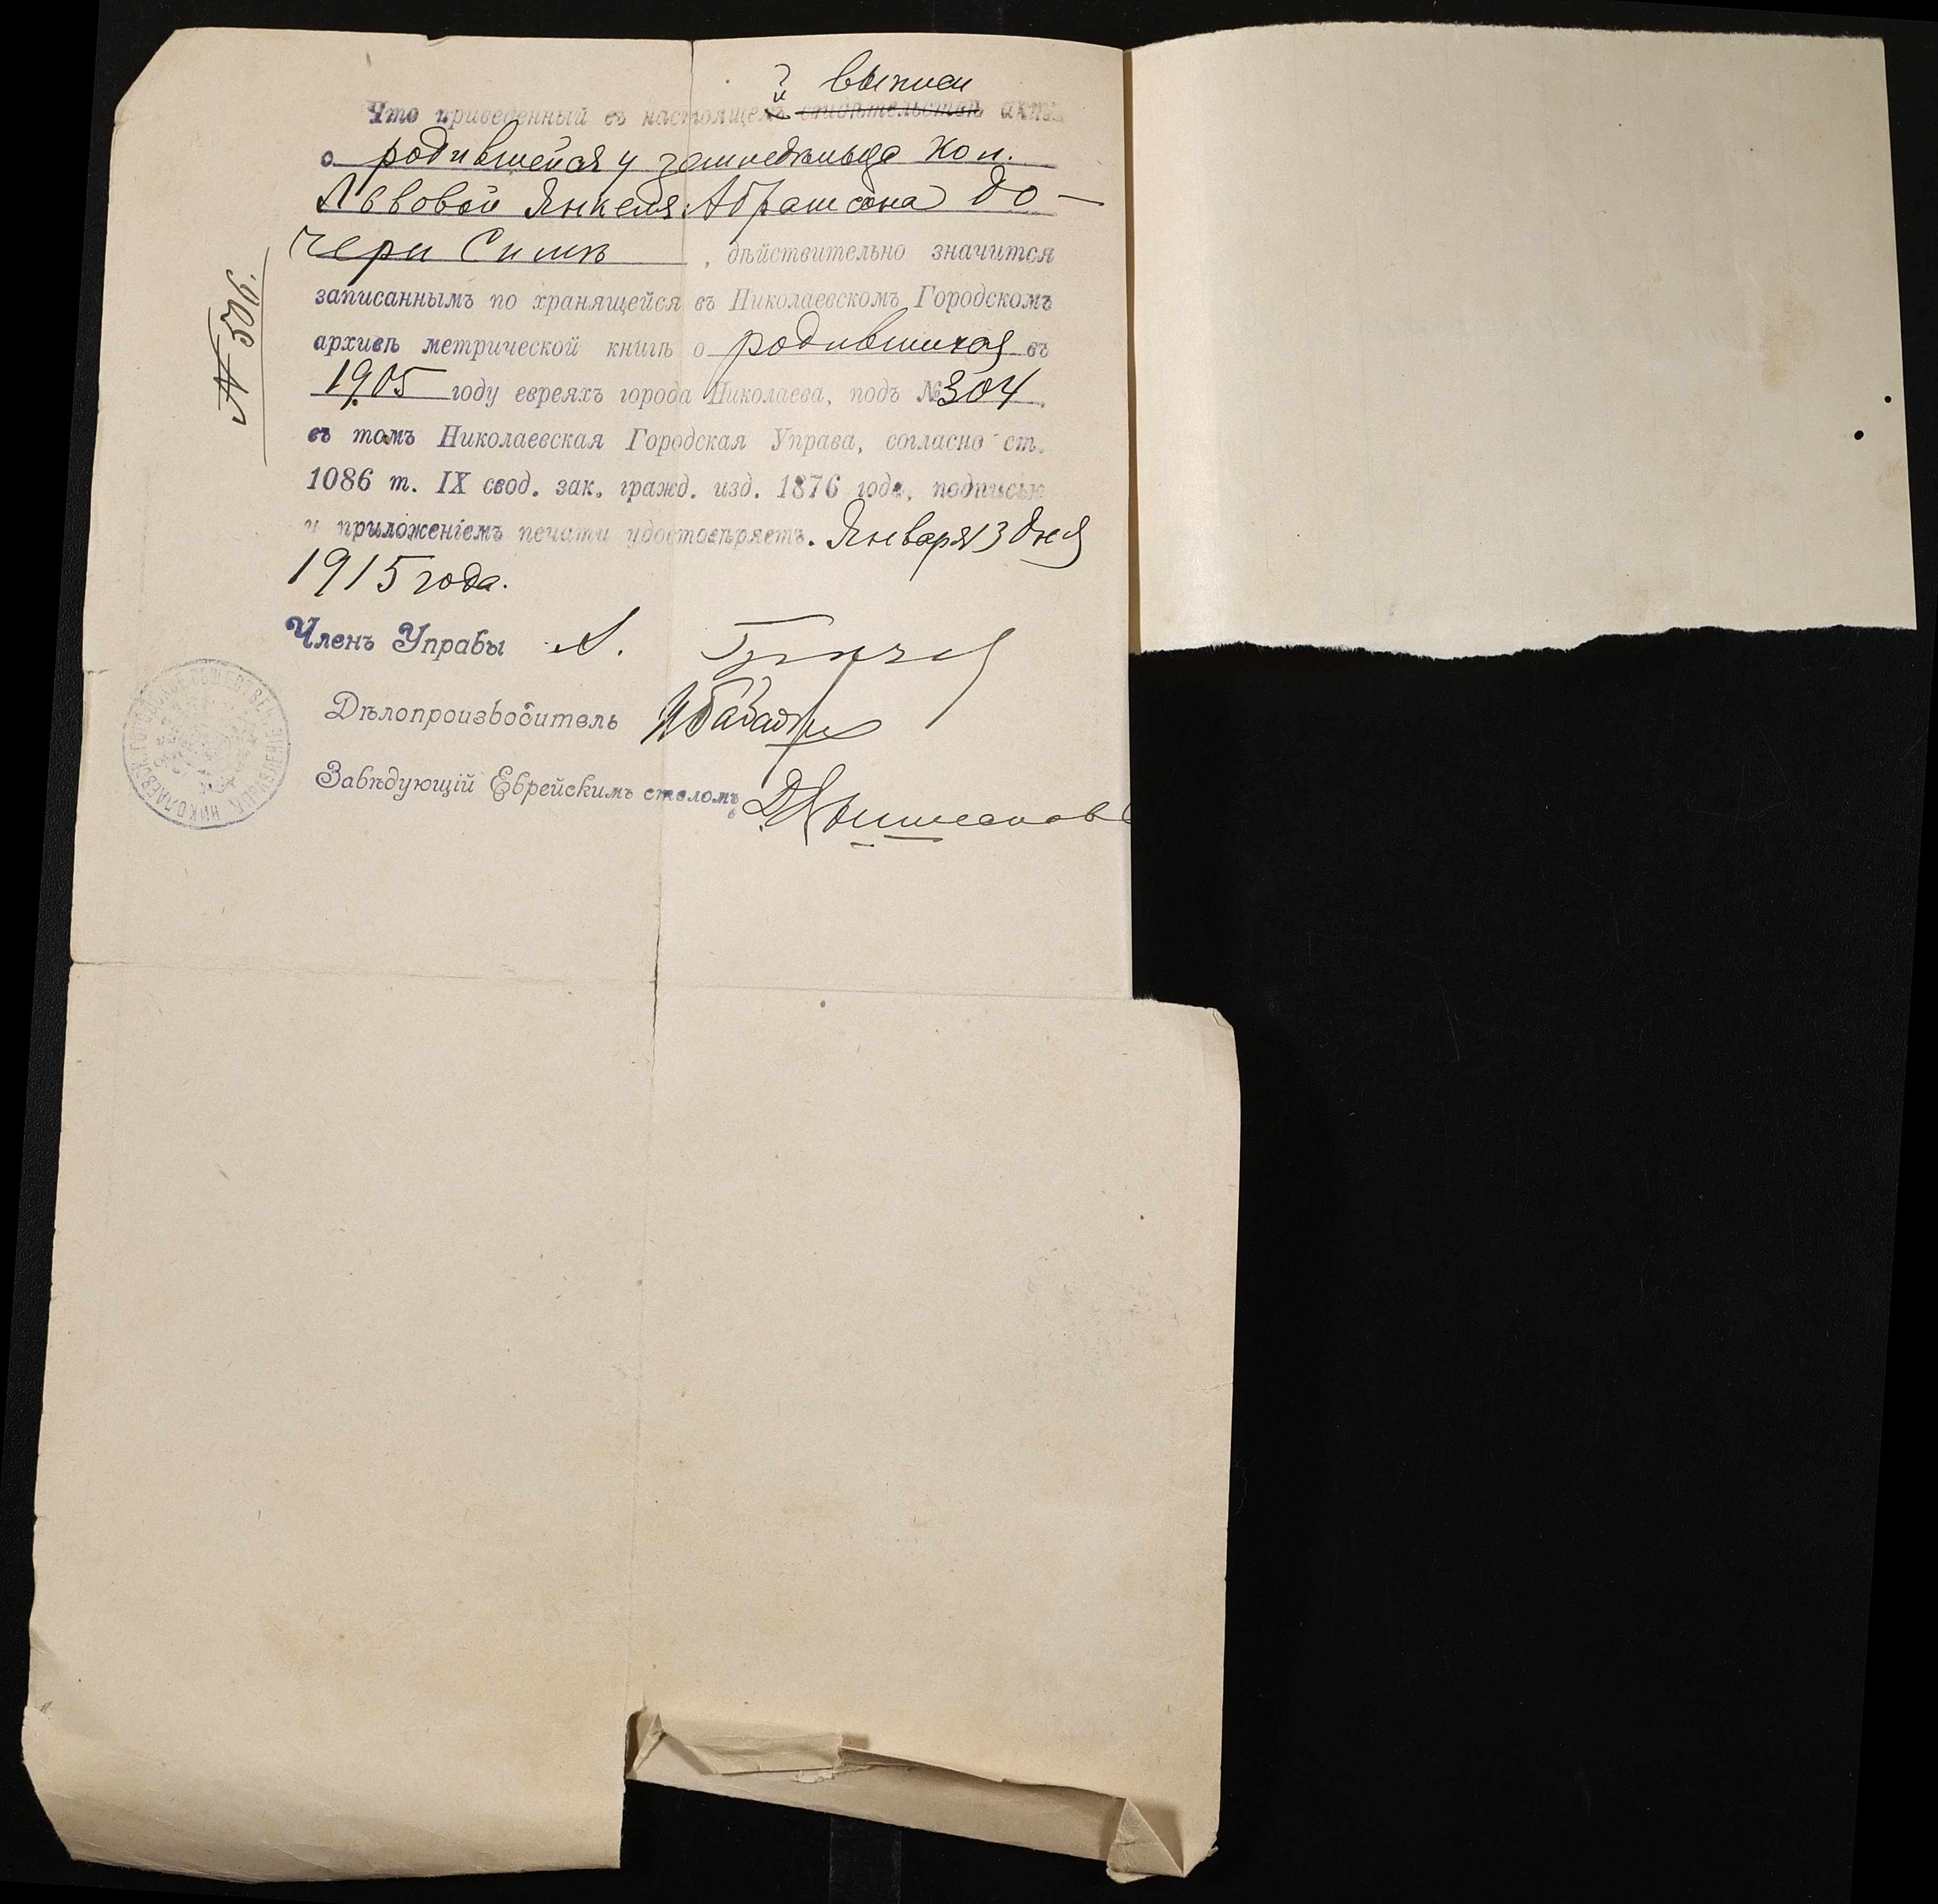 выписи
Что приведенный въ настоящей свидѣтельствѣ актъ
о родившейся у земледѣльца Кол.
Львовой Янкеля Абрамсона до-
чери Симѣ, дѣйствительно значится
записаннымъ по хранящейся въ Николаевскомъ Городскомъ
архивѣ метрической книгѣ о родившихся въ
1905 году евреяхъ города Николаева, подъ № 304.
въ томъ Николаевская Городская Управа, согласно ст.
1086 т. IX свод. зак. гражд. изд. 1876 года, подписью
и приложеніемъ печати удостовѣряетъ. Января 13 дня
1915 года.
№ 506.
Членъ Управы
Дѣлопроизводитель
Завѣдующій Еврейскимъ столомъ